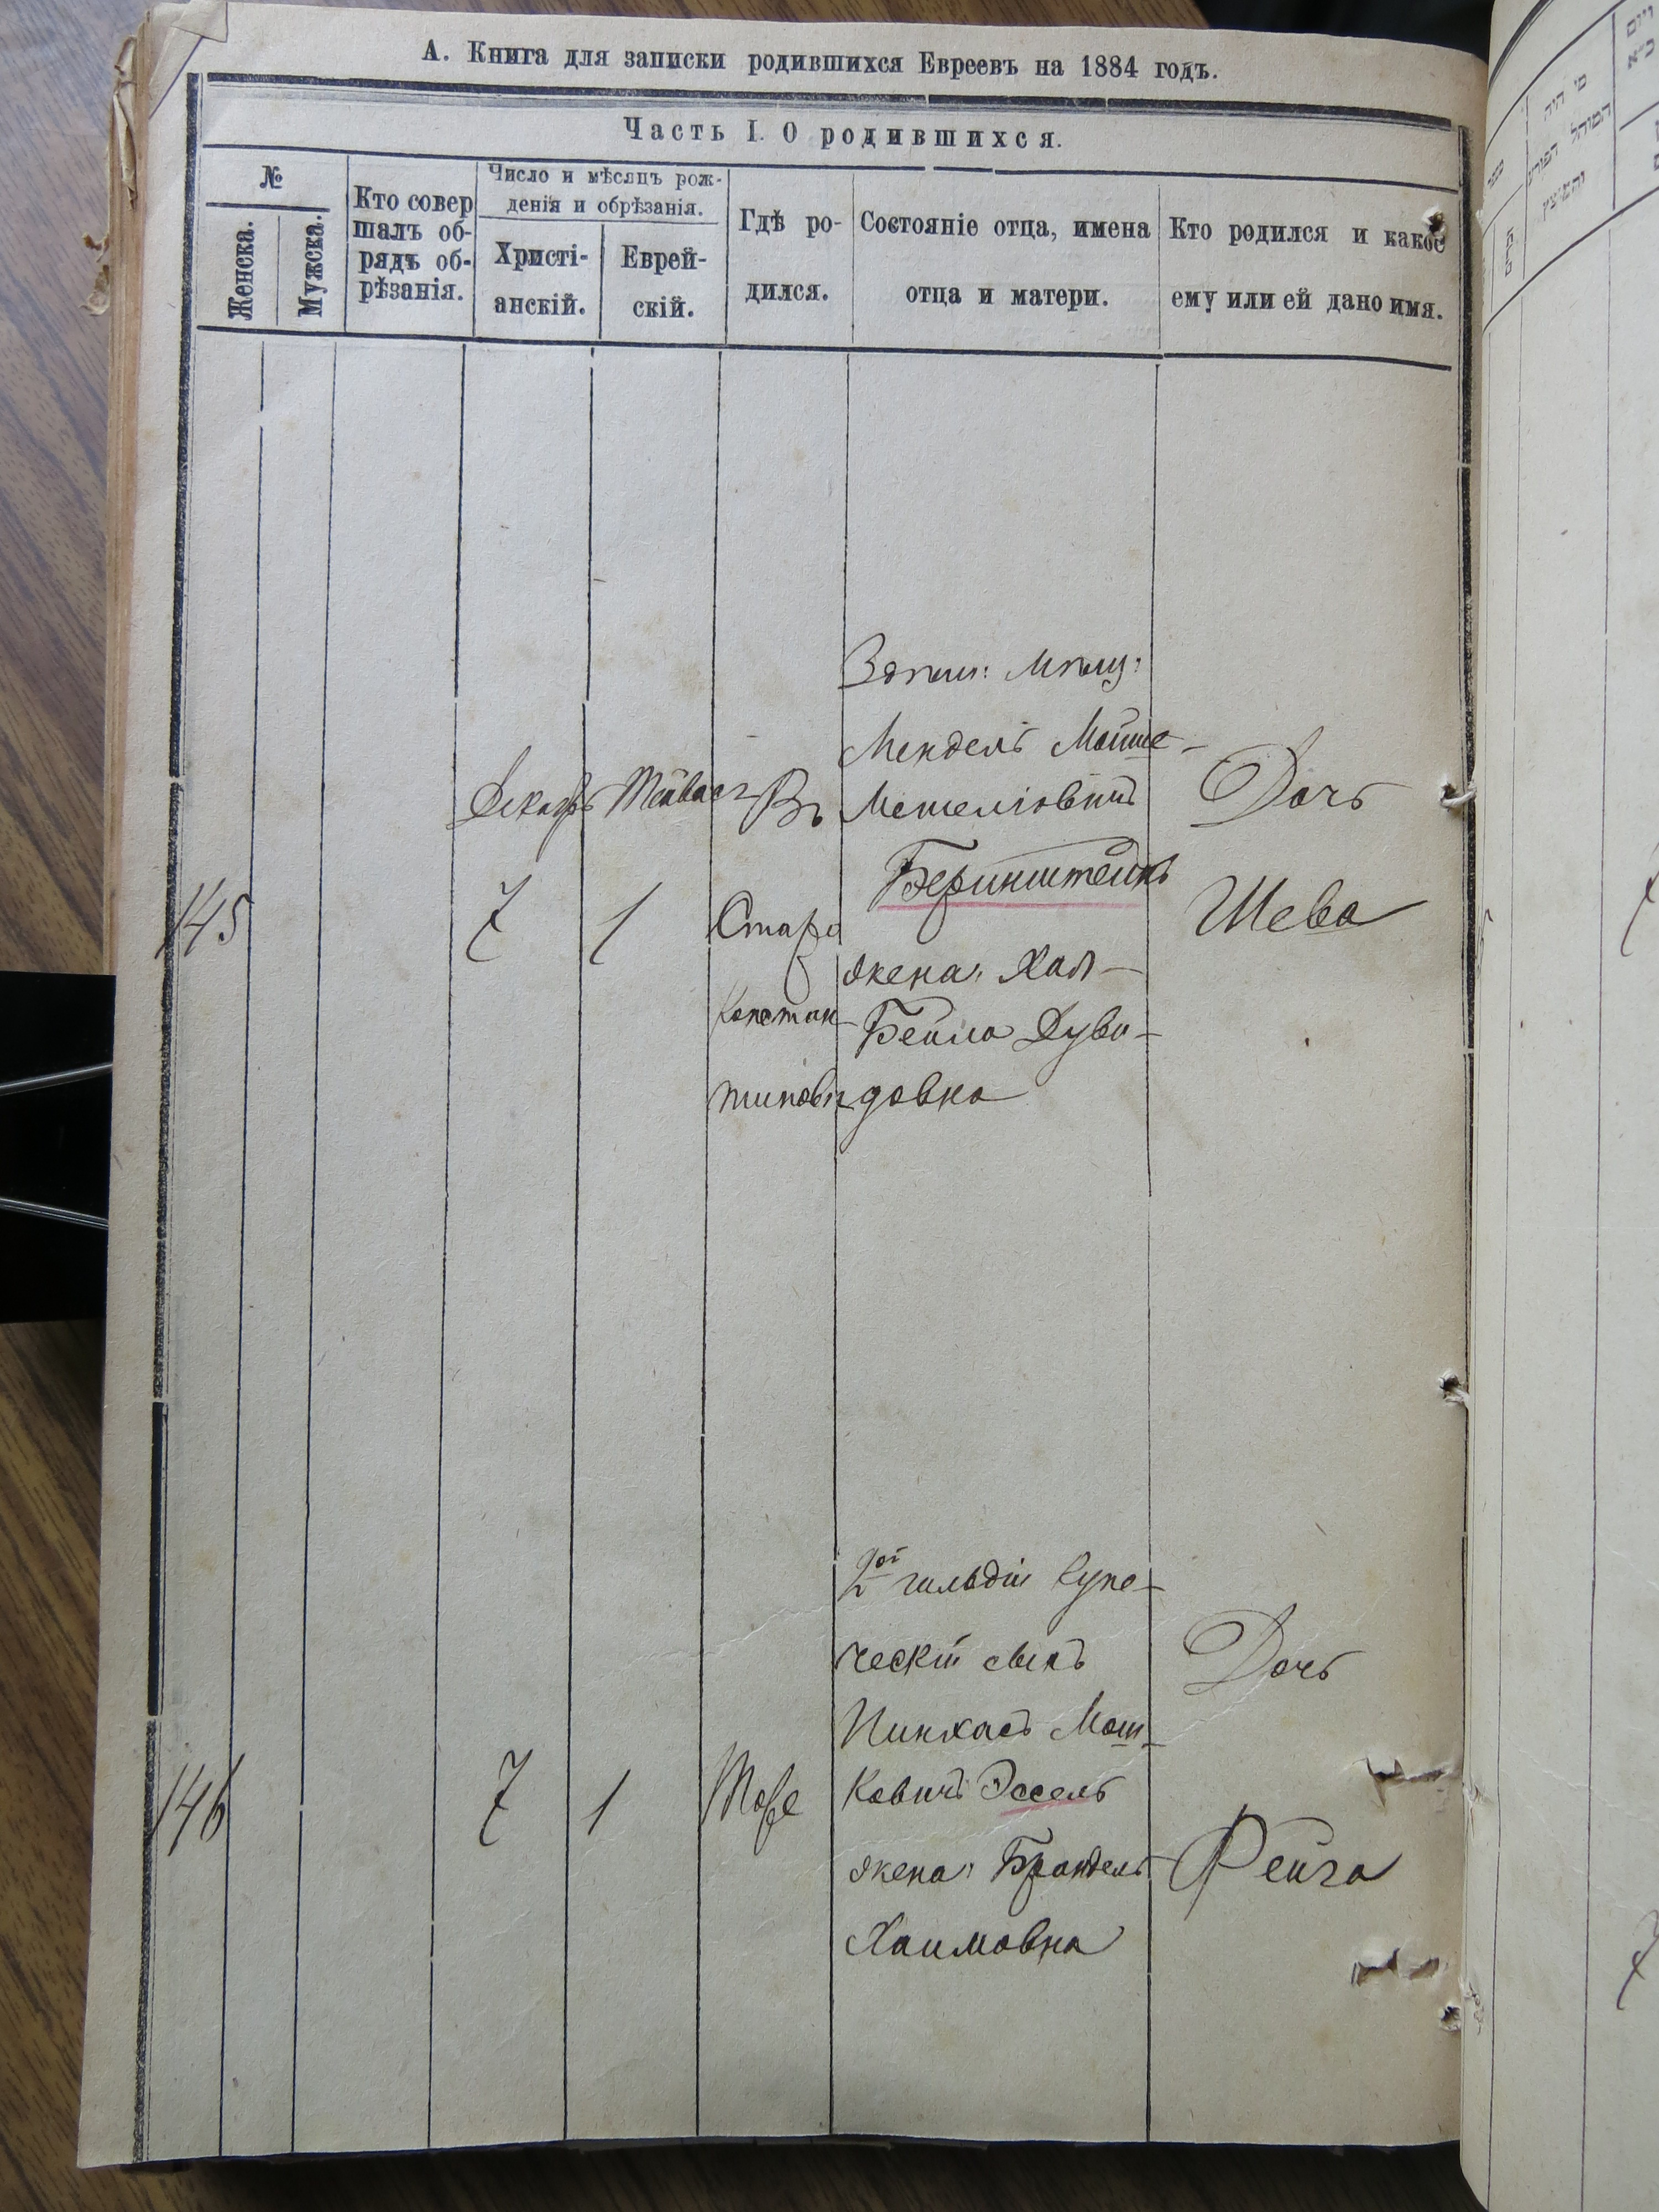 А. Книга для записки родившихся Евреевъ на 1884 годъ.
Часть I. О родившихся.
№
Женска.
Мужска.
Кто совер
шалъ об-
рядъ об-
рѣзанія.
Число и мѣсяцъ рож-
денія и обрѣзанія.
Христі-
анскій.
Еврей-
скій.
Гдѣ ро-
дился.
Состояніе отца, имена
отца и матери.
Кто родился и какое
ему или ей дано имя.
145
Декабръ
7
1
Въ
Старо
Констан-
тиновѣ
Мендель Мойше-
Беринштейнъ
жена: Хая-
Бейла Дуви-
довна
Дочь
Шева
146
7
1
Тоже
2ой гильдіи купе-
ческій сынъ
Пинхасъ Мош-
ковичъ Эссель
жена: Брандель
Хаимовна
Дочь
Фейга